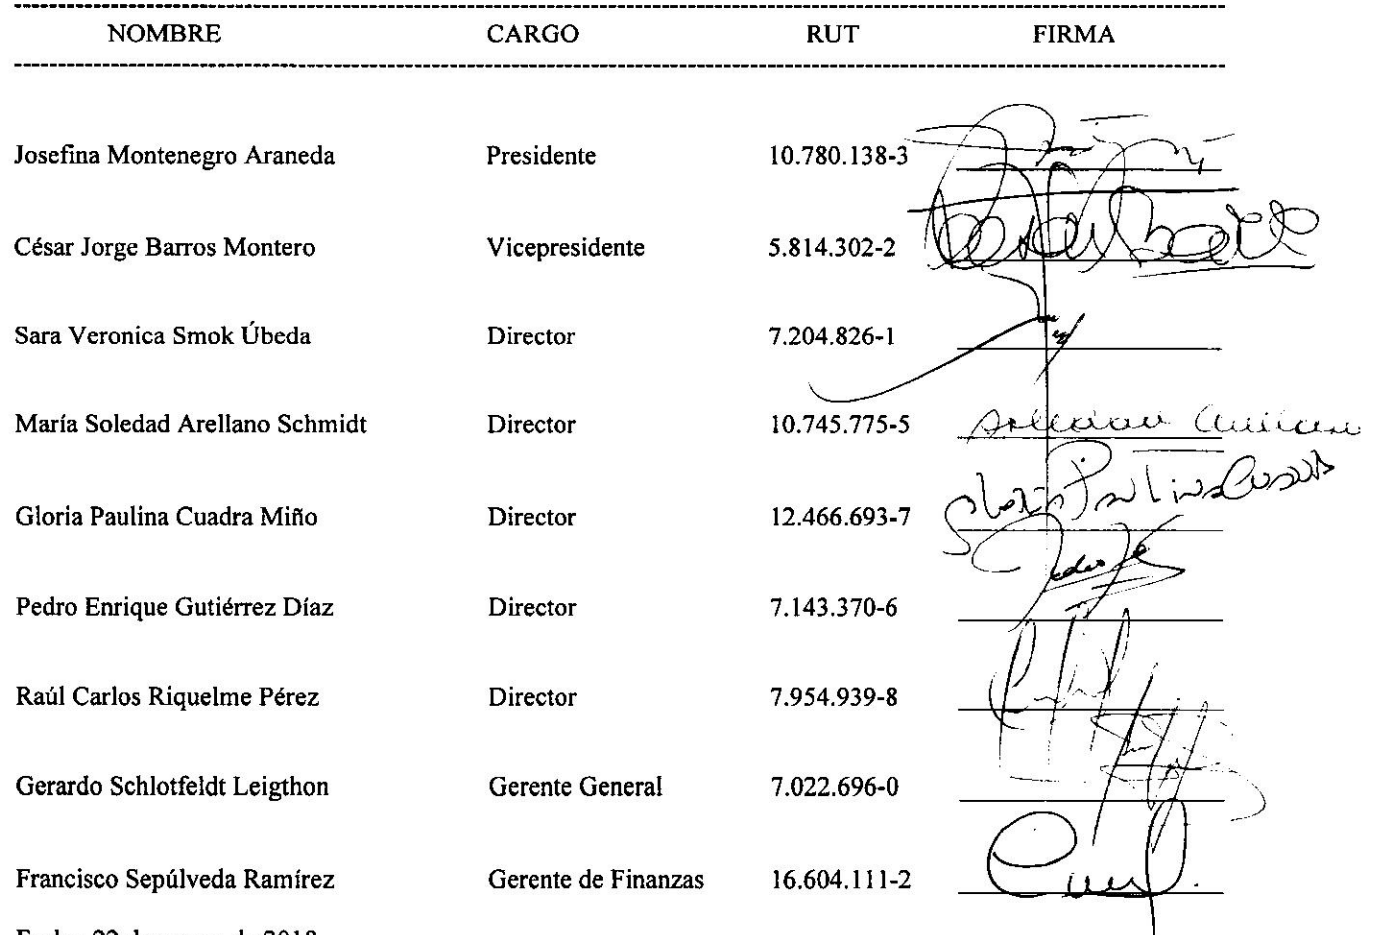 NOMBRE CARGO RUT FIRMA
Josefina Montenegro Araneda Presidente 10.780.138-3
César Jorge Barros Montero Vicepresidente 5.814.302-2
Sara Veronica Smok Úbeda Director 7.204.826-1
María Soledad Arellano Schmidt Director 10.745.775-5
Gloria Paulina Cuadra Miño Director 12.466.693-7
Pedro Enrique Gutiérrez Díaz Director 7.143.370-6
Raúl Carlos Riquelme Pérez Director 7.954.939-8
Gerardo Schlotfeldt Leigthon Gerente General 7.022.696-0
Francisco Sepúlveda Ramírez Gerente de Finanzas 16.604.111-2